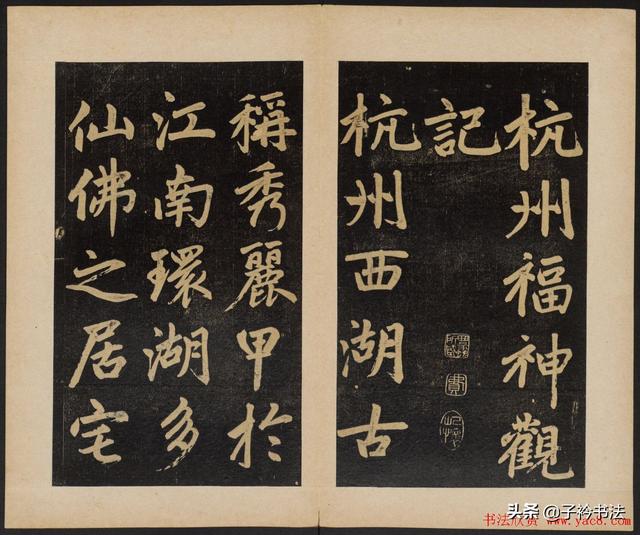 杭州福神觀
記
杭州西湖古
稱秀麗甲於
江南環湖多
仙佛之居宅
书法欣赏 www.yac8.com
头条 @子衿书法